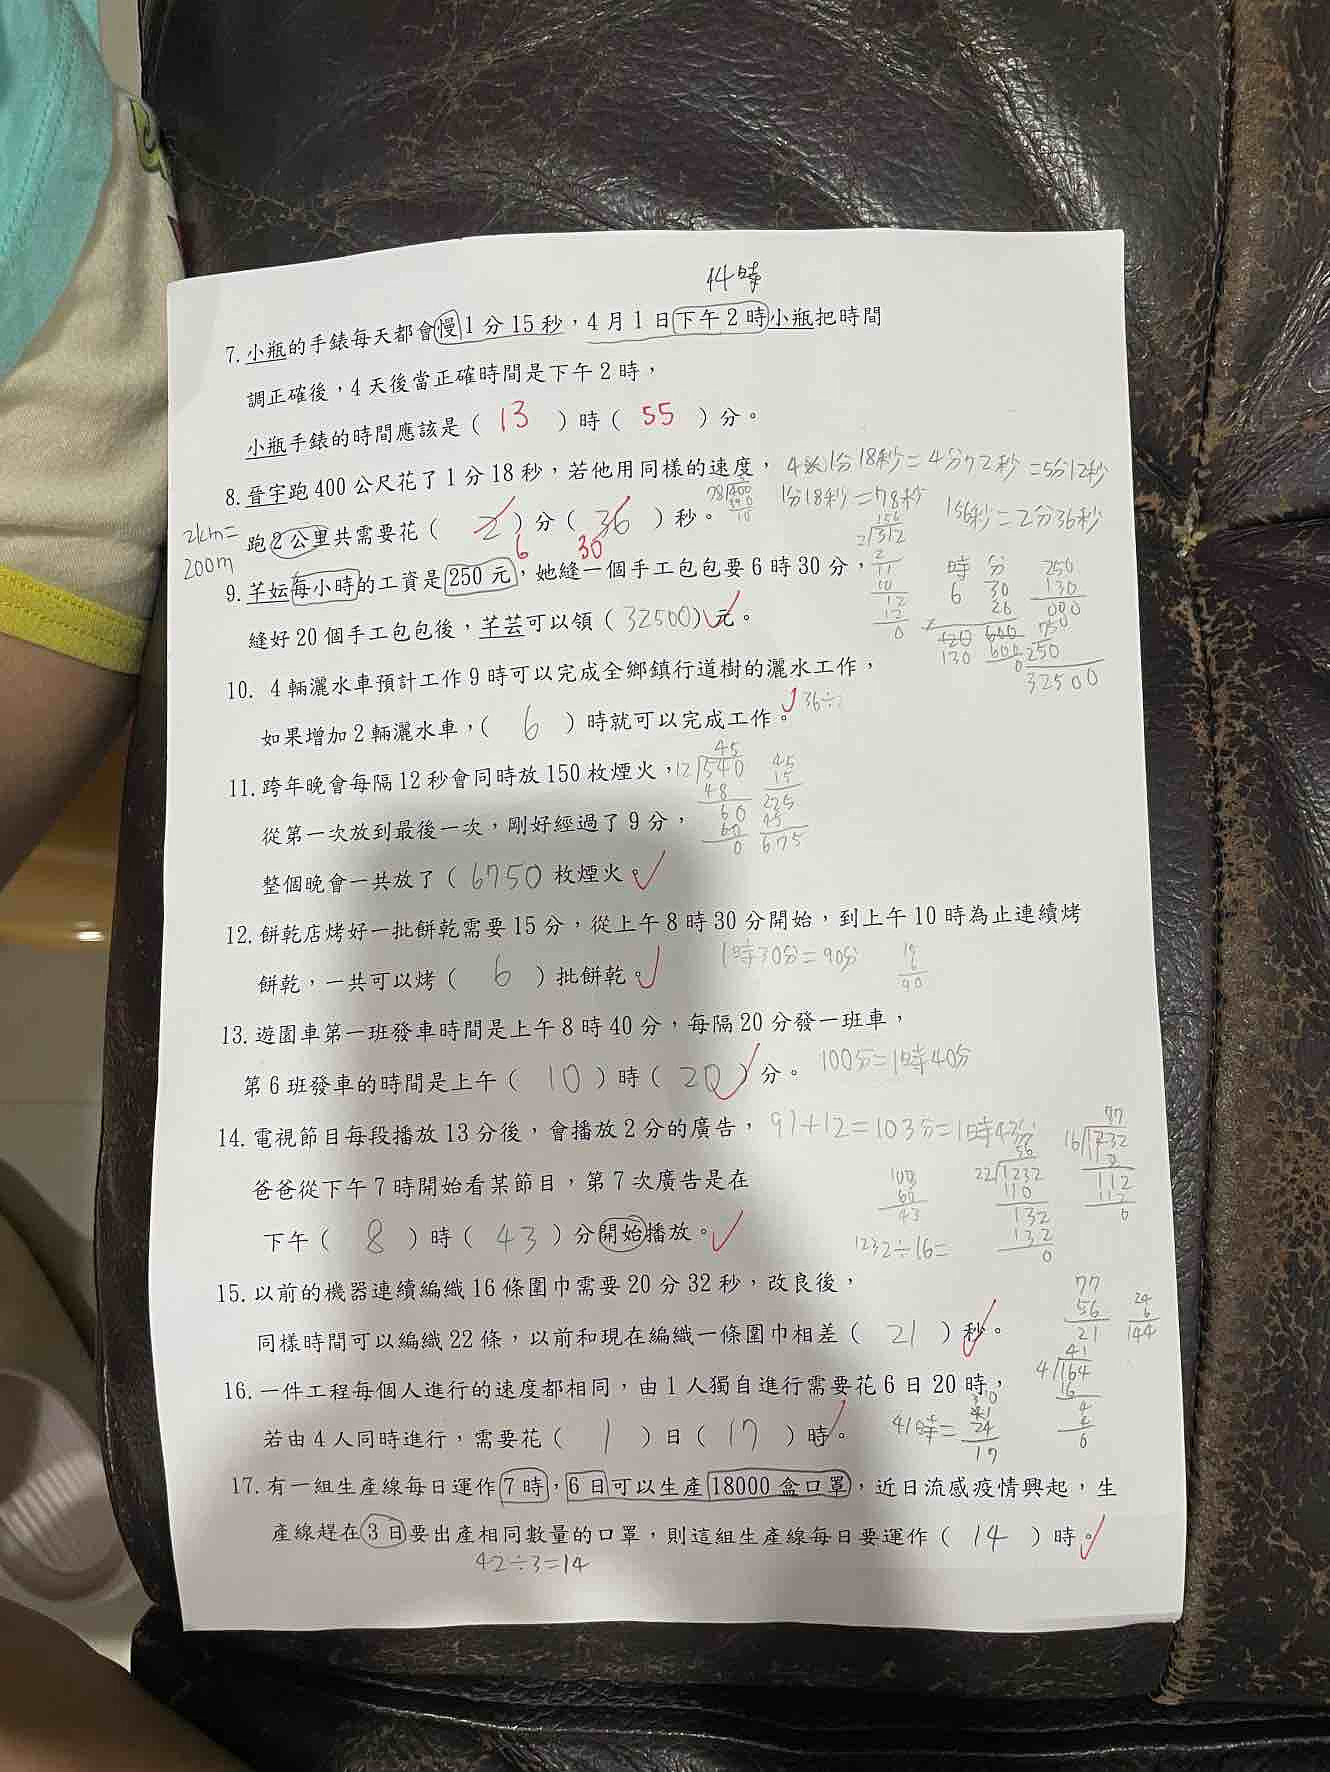 14時
7. 小瓶的手錶每天都會慢1分15秒，4月1日下午2時小瓶把時間
調正確後，4天後當正確時間是下午2時，
小瓶手錶的時間應該是（ 13 ）時（ 55 ）分。
8. 晉宇跑400公尺花了1分18秒，若他用同樣的速度，
4×1分18秒=4分72秒=5分12秒
1分18秒=78秒
156秒=2分36秒
2km=
200m
跑2公里共需要花（ 2 ）分（ 36 ）秒。
6 30
156
2/312
2
11
10
12
12
0
9. 芊妘每小時的工資是250元，她縫一個手工包包要6時30分，
縫好20個手工包包後，芊芸可以領（32500）元。
時 分
6 30
20
120 600
130 600
0
250
130
000
750
250
32500
10. 4輛灑水車預計工作9時可以完成全鄉鎮行道樹的灑水工作，
如果增加2輛灑水車，（ 6 ）時就可以完成工作。
36÷
11. 跨年晚會每隔12秒會同時放150枚煙火，
從第一次放到最後一次，剛好經過了9分，
整個晚會一共放了（6750枚煙火。
45
12/540
48
60
60
0
45
15
225
45
675
12. 餅乾店烤好一批餅乾需要15分，從上午8時30分開始，到上午10時為止連續烤
餅乾，一共可以烤（ 6 ）批餅乾。
1時30分=90分
90
13. 遊園車第一班發車時間是上午8時40分，每隔20分發一班車，
第6班發車的時間是上午（ 10 ）時（ 20 ）分。
100分=1時40分
14. 電視節目每段播放13分後，會播放2分的廣告，
91+12=103分=1時43分
爸爸從下午7時開始看某節目，第7次廣告是在
下午（ 8 ）時（ 43 ）分開始播放。
103
60
43
1232÷16=
56
22/1232
110
132
132
0
77
16/1232
112
112
0
15. 以前的機器連續編織16條圍巾需要20分32秒，改良後，
同樣時間可以編織22條，以前和現在編織一條圍巾相差（ 21 ）秒。
77
56
21
24
6
144
16. 一件工程每個人進行的速度都相同，由1人獨自進行需要花6日20時，
若由4人同時進行，需要花（ 1 ）日（ 17 ）時。
41時=
41
24
17
41
4/164
16
4
4
0
17. 有一組生產線每日運作7時，6日可以生產18000盒口罩，近日流感疫情興起，生
產線趕在3日要出產相同數量的口罩，則這組生產線每日要運作（ 14 ）時。
42÷3=14